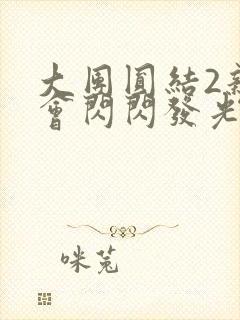 大團圓結2新
會閃閃發光
咪菟